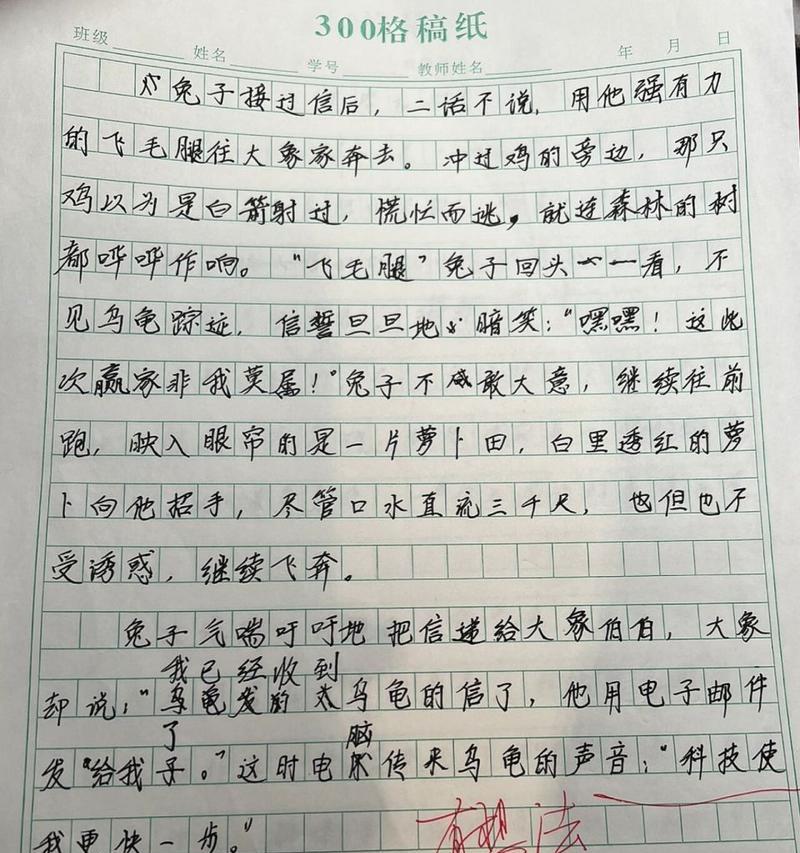 300格稿纸
班级 姓名 学号 教师姓名 年 月 日
兔子接过信后，二话不说，用他强有力
的飞毛腿往大象家奔去。冲过鸡的旁边，那只
鸡以为是白箭射过，慌忙而逃，就连森林的树
都哗哗作响。“飞毛腿”兔子回头一看，不
见乌龟踪迹，信誓旦旦地暗笑：“嘿嘿！这
次赢家非我莫属！”兔子不敢大意，继续往前
跑，映入眼帘的是一片萝卜田，白里透红的萝
卜向他招手，尽管口水直流三千尺，但也不
受诱惑，继续飞奔。
兔子气喘吁吁地把信递给大象伯伯，大象
我已经收到
却说：“乌龟的信了，他用电子邮件
了 脑
发给我。”这时电传来乌龟的声音：“科技使
我更快一步。”
有想法